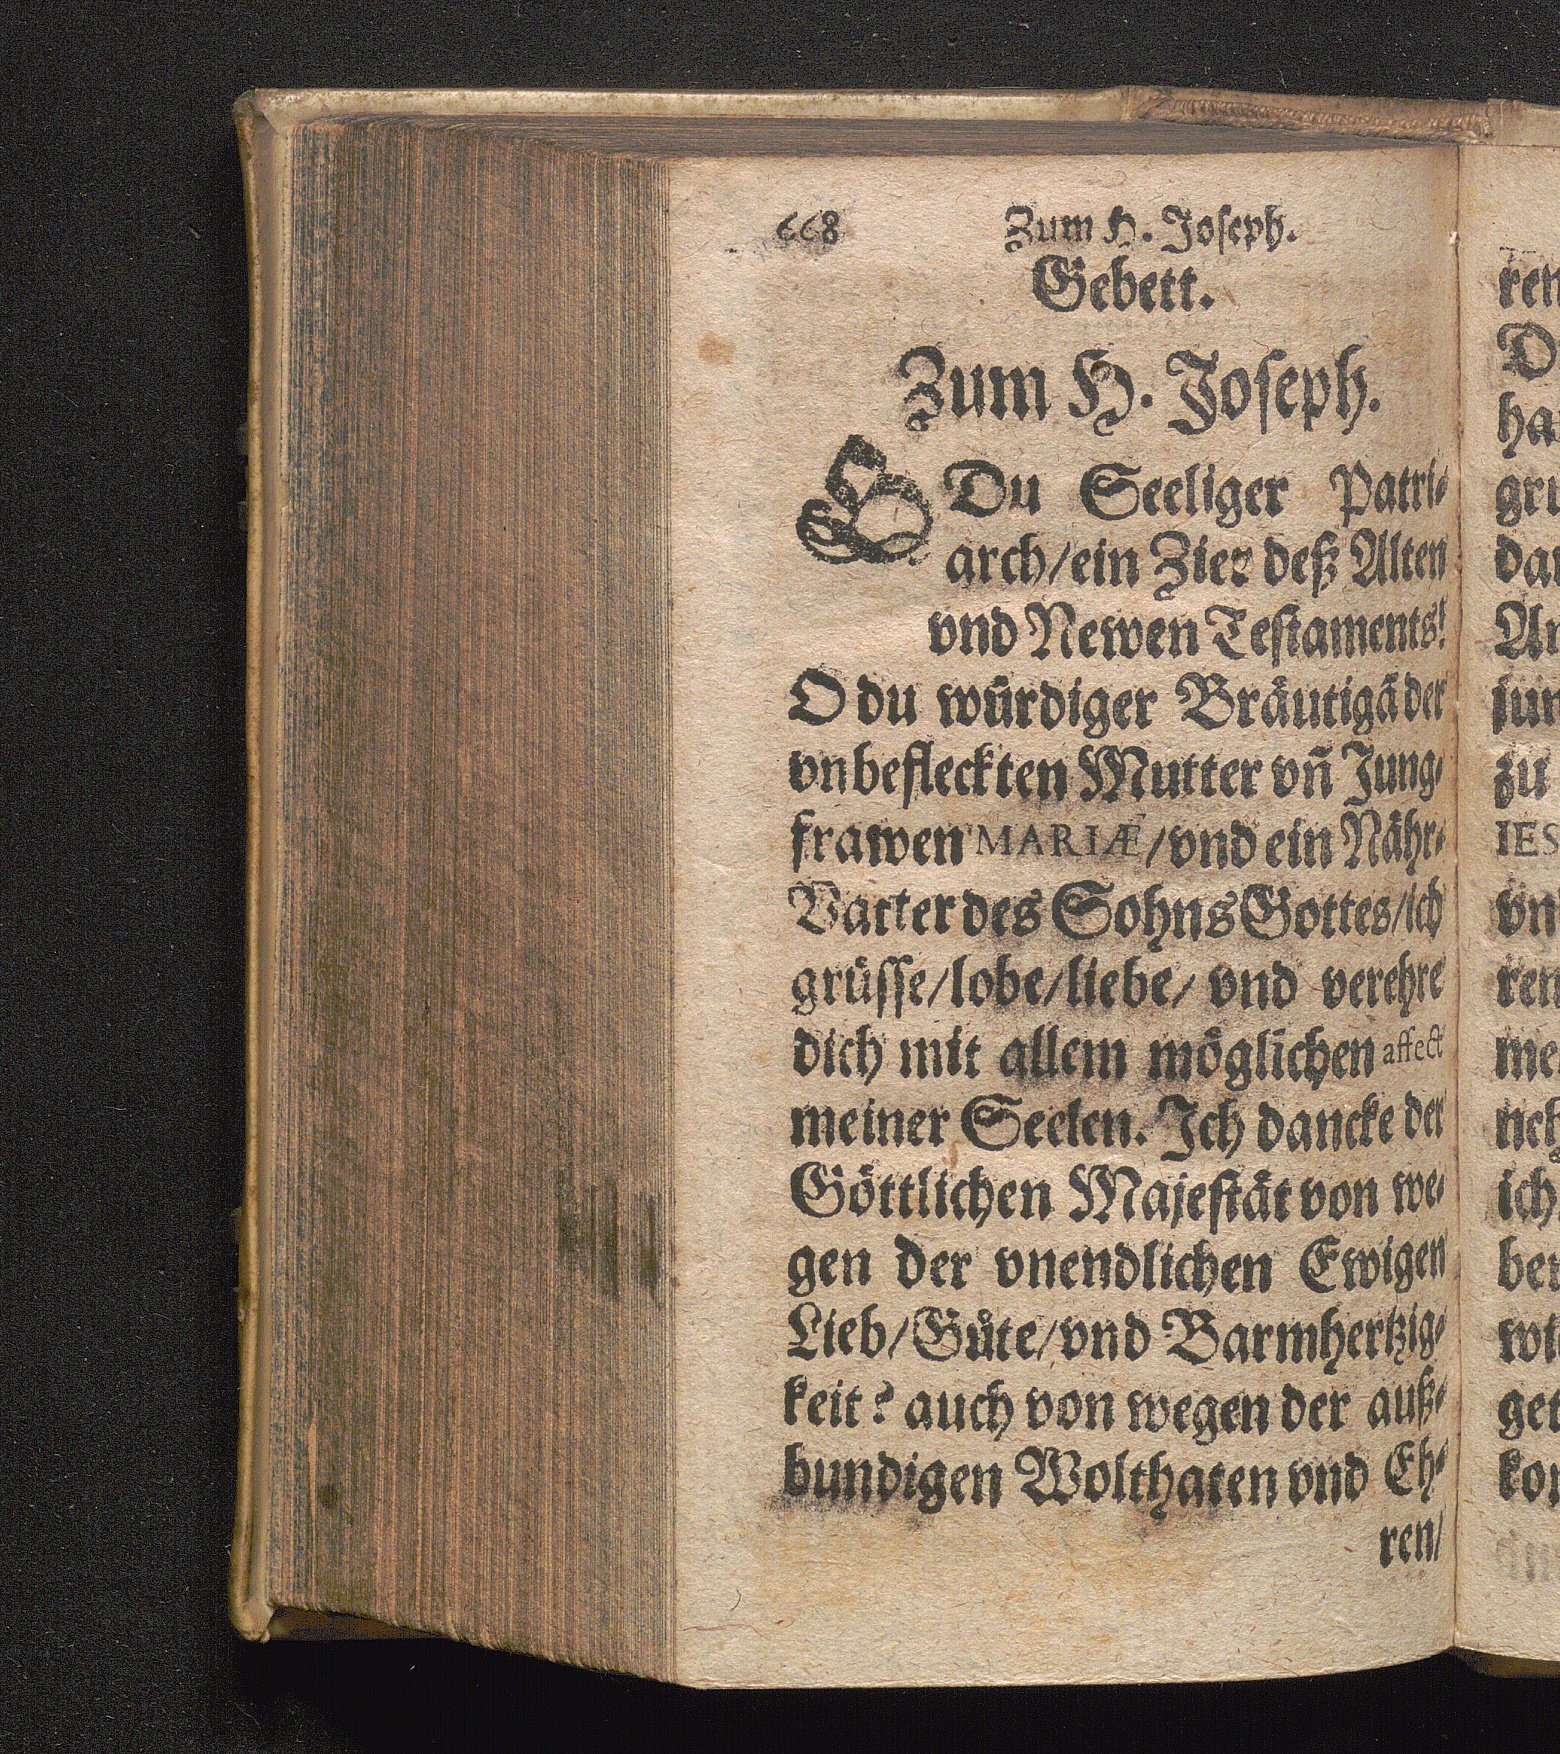 668 Zum H. Joseph.
Gebett.
Zum H. Joseph.
O Du Seeliger Patri-
arch/ein Zier deß Alten
vnd Newen Testaments!
O du würdiger Bräutigā der
vnbefleckten Mutter vn̄ Jung-
frawen MARIÆ/vnd ein Nähr-
Vatter des Sohns Gottes/ich
grüsse/lobe/liebe/ vnd verehre
dich mit allem möglichen affect
meiner Seelen. Ich dancke der
Göttlichen Majestät von we-
gen der vnendlichen Ewigen
Lieb/Güte/vnd Barmhertzig-
keit? auch von wegen der auß-
bundigen Wolthaten vnd Eh-
ren/